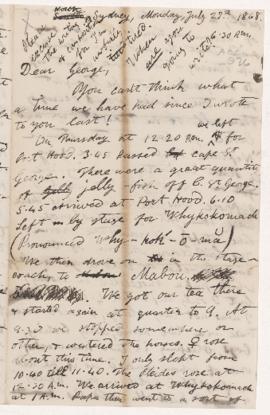 Sydney, Monday, July 27th, 1868.
When are you going to write
6.30 A.M.
Dear George,
You can't think what
a time we have had since I wrote
to you last!
we left
On Thursday at 12.20 P.M. for
Port Hood. 3.45 passed Cape St.
George. There were a great quantity
of jelly fish off C. St. George.
5.45 arrived at Port Hood. 6.10
left by stage for Whykokomach
(Pronounced Why-kok'-o-mă)
We then drove on in the stage-
coach to Mabou.
We got our tea there
& started again at quarter to 9. At
9.30 we stopped somewhere or
other, & watered the horses. I rose
about this time. I only slept from
10.40 till 11.40. The Eldes rose at
12.30 A.M. We arrived at Whykokomach
at 1 A.M. Papa then went to a sort of